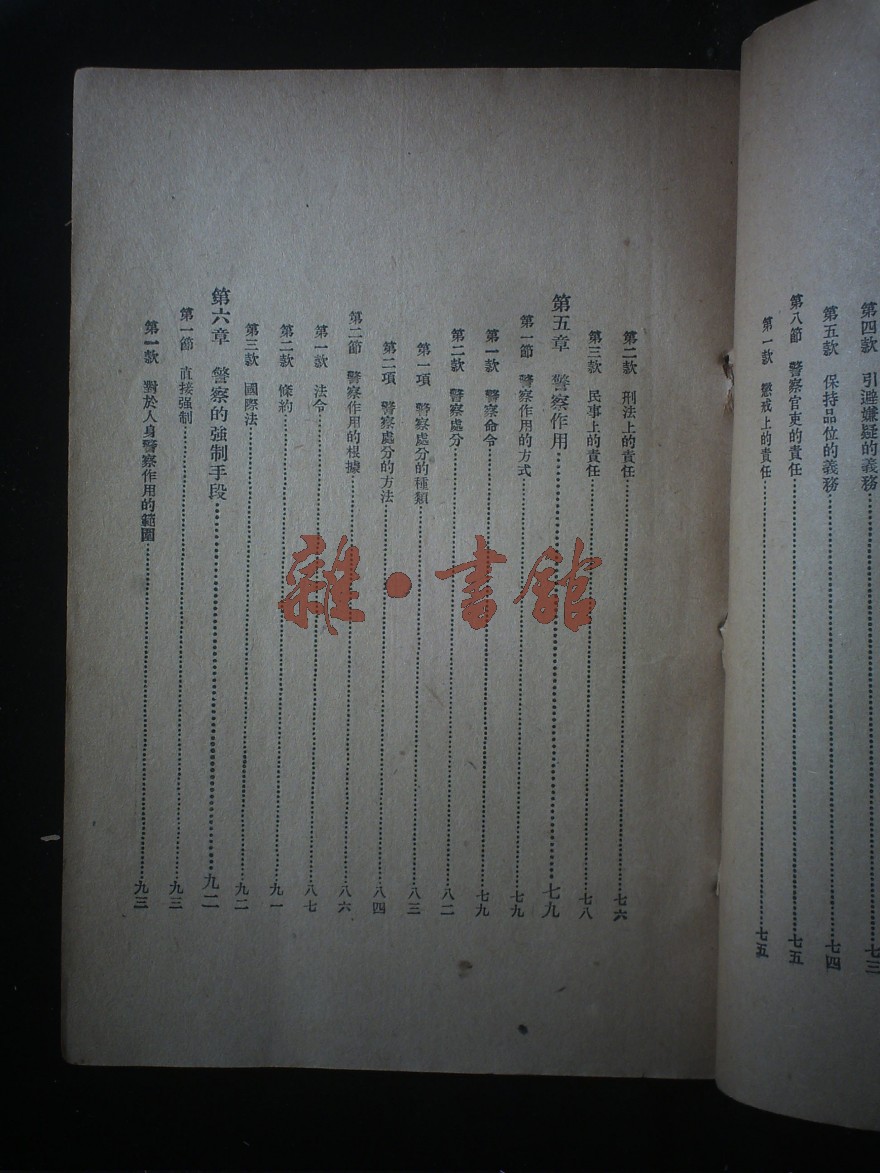 第四款 引避嫌疑的義務……七三
第五款 保持品位的義務……七四
第八節 警察官吏的責任……七五
第一款 懲戒上的責任……七五
第二款 刑法上的責任……七六
第三款 民事上的責任……七八
第五章 警察作用……七九
第一節 警察作用的方式……七九
第一款 警察命令……七九
第二款 警察處分……八二
第一項 警察處分的種類……八三
第二項 警察處分的方法……八四
第二節 警察作用的根據……八六
第一款 法令……八七
第二款 條約……九一
第三款 國際法……九二
第六章 警察的強制手段……九二
第一節 直接強制……九三
第一款 對於人身警察作用的範圍……九三
雜·書館